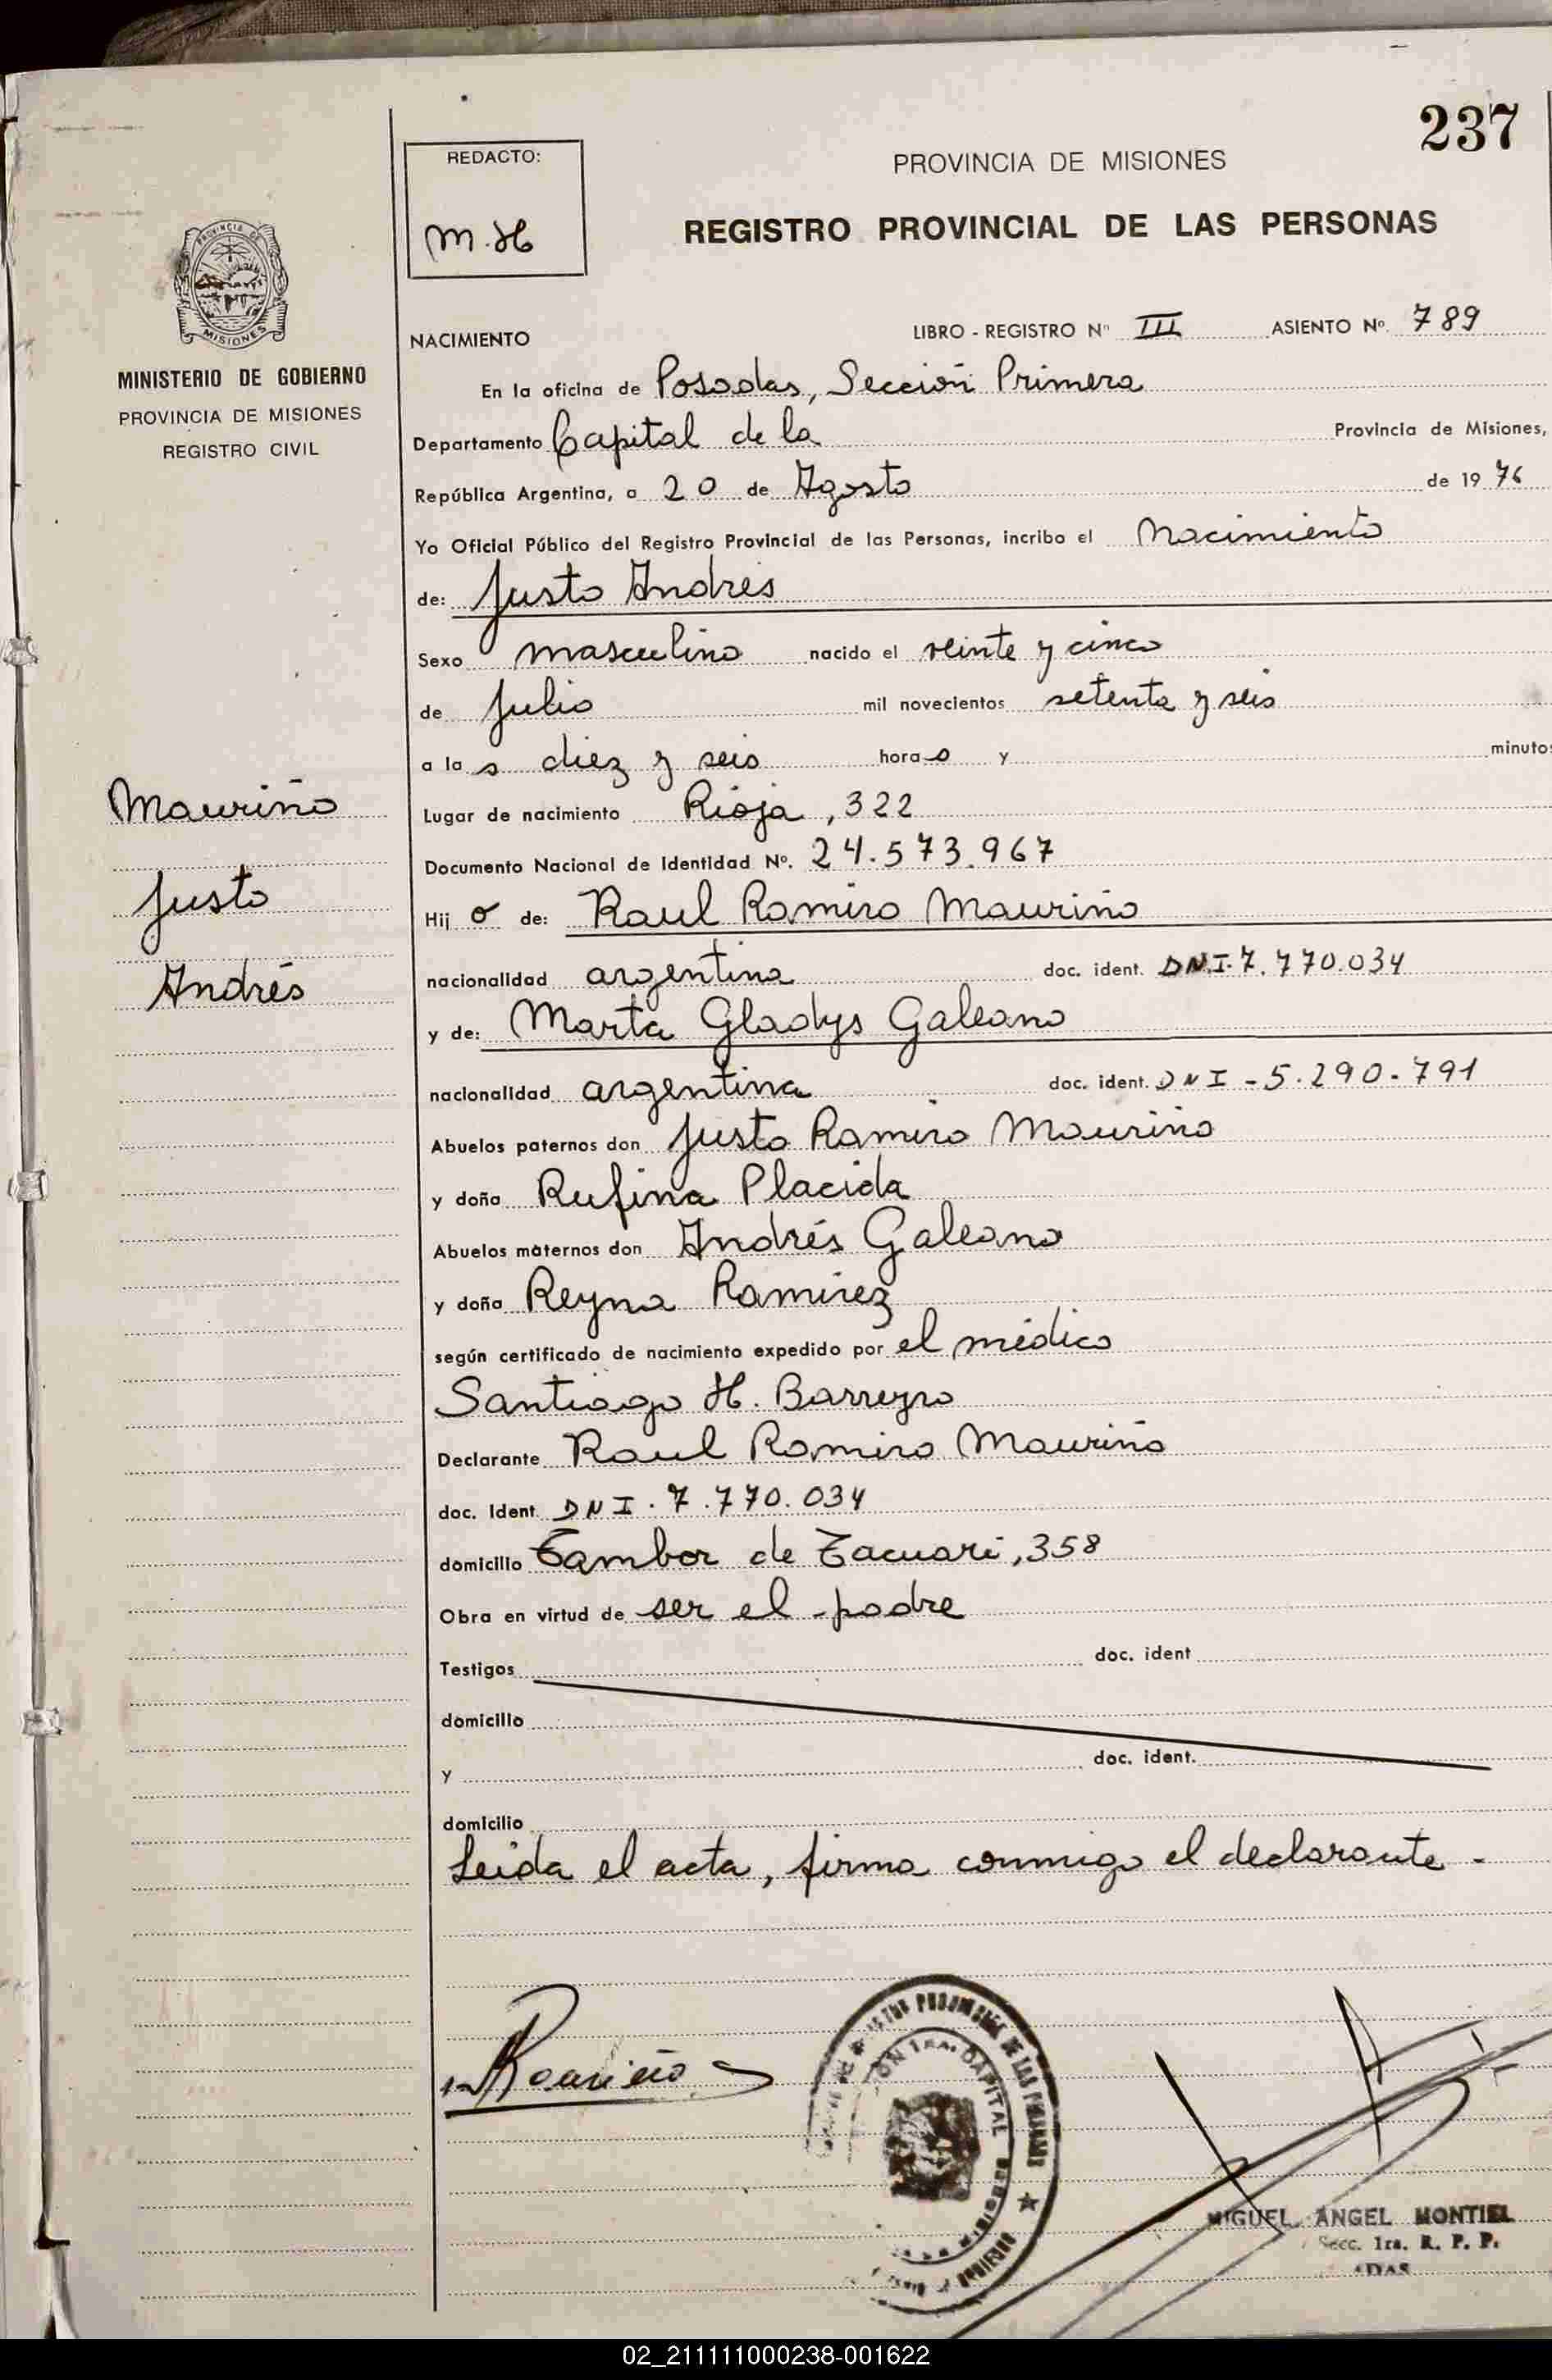 237
REDACTO:
M. H
PROVINCIA DE MISIONES
REGISTRO PROVINCIAL DE LAS PERSONAS
PROVINCIA DE
MISIONES
MINISTERIO DE GOBIERNO
PROVINCIA DE MISIONES
REGISTRO CIVIL
NACIMIENTO LIBRO - REGISTRO Nº III ASIENTO Nº. 789
En la oficina de Posadas, Sección Primera
Departamento Capital de la Provincia de Misiones,
República Argentina, a 20 de Agosto de 1976
Yo Oficial Público del Registro Provincial de las Personas, incribo el Nacimiento
de: Justo Andrés
Sexo masculino nacido el veinte y cinco
de Julio mil novecientos setenta y seis
a las diez y seis horas y minutos
Mauriño
Justo
Andrés
Lugar de nacimiento Rioja, 322
Documento Nacional de Identidad Nº. 24.573.967
Hijo de: Raul Ramiro Mauriño
nacionalidad argentina doc. ident. DNI.7.770.034
y de: Marta Gladys Galeano
nacionalidad argentina doc. ident. DNI-5.290.791
Abuelos paternos don Justo Ramiro Mauriño
y doña Rufina Placida
Abuelos maternos don Andrés Galeano
y doña Reyna Ramírez
según certificado de nacimiento expedido por el médico
Santiago H. Barreyro
Declarante Raul Ramiro Mauriño
doc. Ident. DNI.7.770.034
domicilio Tambor de Tacuari, 358
Obra en virtud de ser el padre
Testigos doc. ident
domicilio
y doc. ident.
domicilio
Leida el acta, firma conmigo el declarante -
CAPITAL
DE LAS
MIGUEL ANGEL MONTIEL
Secc. 1ra. R. P. P.
02_211111000238-001622